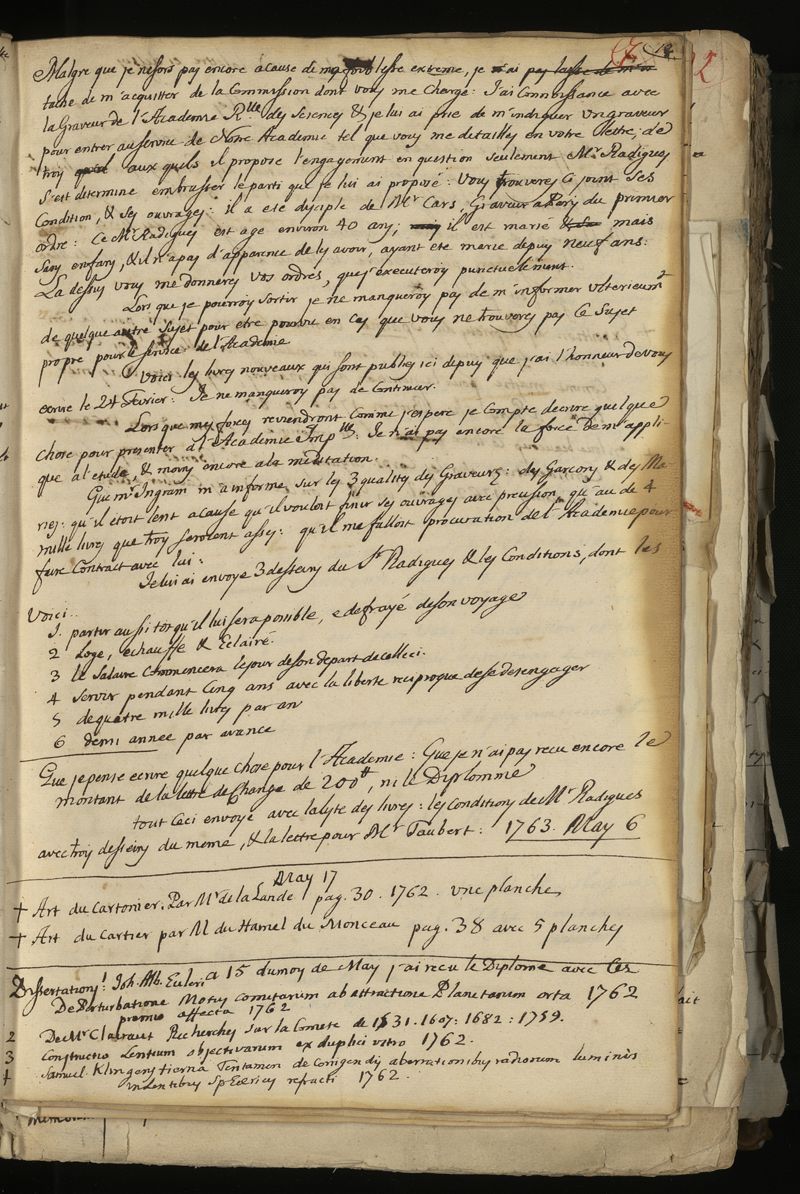 12
Malgre que je ne sors pas encore a cause de ma foiblesse extreme, je n'ai pas laissé de m'a
taché de m'acquitter de la Commission dont vous me Chargé: J'ai Connoissance avec
la Graveur de l'Academie Rlle des Sciences & je lui ai prie de m'indiquer un graveur
pour entrer au service de Notre Academie tel que vous me detailles en votre Lettre; de
troys aux quels il propose l'engagement en question seulement Mr. Radigues
s'est determiné embrasser le parti que je lui ai proposé: Vous trouveres Ce joint Ses
Condition, & ses ouvrages: il a eté disciple de Mr Cars, Graveur a Pary du premier
ordre: Ce Mr Radigues est age environ 40 any; il est marié mais
sans enfans, & il n'a pas d'apparence de les avoir, ayant eté marié depuy neuf ans.
La dessus vous me donneres vos ordres, que j'executeray punctuelement.
Lors que je pourroy sortir je ne manqueroy pas de m'informer ulterieurmt
de quelque autre Sujet pour etre pourvu en Cas que vous ne trouveres pas Ce Sujet
propre pour le service de l'Academie
Voici les livres nouveaux qui sont publies ici depuy que j'ai l'honneur de vous
ecrire le 24 Fevrier: Je ne manqueroy pas de Continuer.
Lors que mes forces reviendront Comme j'espere je Compte decrire quelque
Chose pour presenter a l'Academie Implle: Je n'ai pas encore la force de m'appli-
que a l'etude, & moins encore a la meditation.
Que mr Ingram m'a informé sur les 3 qualites des Graveurs: des Garcons & des Ma-
ries: qu'il etoit lent a cause qu'il vouloit finir ses ouvrages avec precision, qu'au de 4
mille livres que troy seroient asses: qu'il me falloit procuration de l'Academie pour
faire Contract avec lui:
Je lui ai envoyé 3 desseins du Sr Radigues & les Conditions, dont les
Voici..
1. partir aussi tot qu'il lui sera possible, e defrayé de son voyage
2 Logé, echauffe & Eclairé.
3 le Salaire Commencera le jour de son depart de celleci.
4 servir pendant Cinq ans avec la liberte reciproque de se desengager
5 de quatre mille livres par an
6 demi année par avance
Que je pense ecrire quelque Chose pour l'Academie: Que je n'ai pas recu encore le
montant de la lettre de Change de 200tt, ni le Diplomme
tout Ceci envoyé avec la lyte des livres: les Conditions de Mr Radigues
avec troy desseins du meme, & la lettre pour Mr Taubert: 1763. May 6
May 17
+ Art du Cartonier. Par Mr. de la Lande pag. 30. 1762. une planche
+ Art du Cartier par M du Hamel du Monceau pag. 38 avec 5 planches
a 15 du moy de May j'ai recu le Diplome avec Ces
Dissertations! Joh. Alb. Euleri
De Perturbatione Motus cometarum ab attractione Planetarum orta 1762
premio affecta 1762
2 De Mr Clairaut Recherches sur la Comete de 1531. 1607: 1682: 1759.
3 Constructio Lentium objectivarum ex duplici vitro 1762.
4 Samuel. Klingenstierna Tentamen de Corrigendis aberrationibus radiorum luminis
in Lentibus Sphericis refracti 1762.